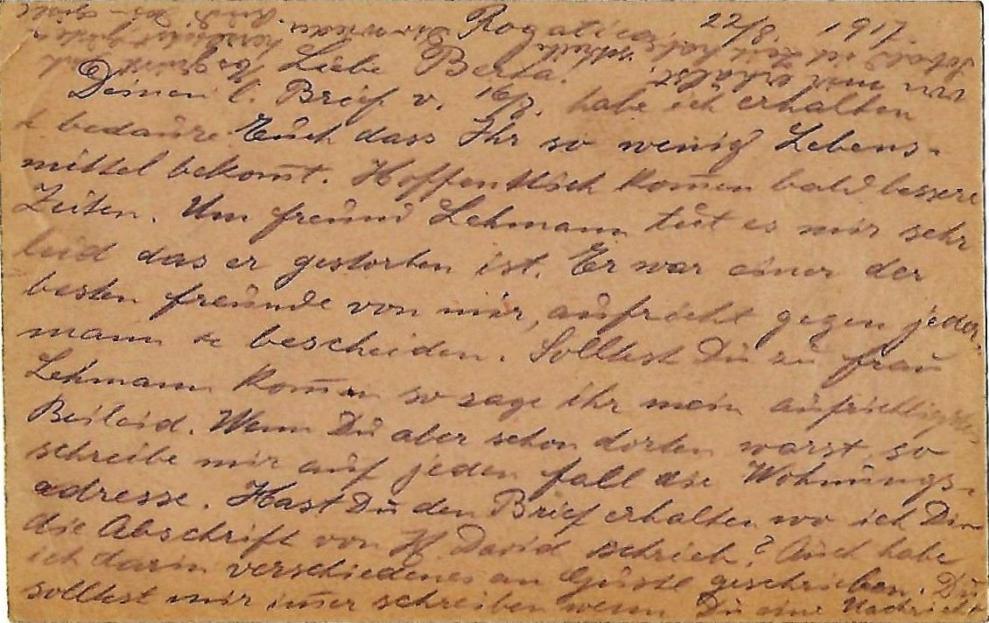 Rogatica, 22/8. 1917.
Liebe Berta!
Deinen l. Brief v. 16/8. habe ich erhalten
& bedaure Euch dass Ihr so wenig Lebens-
mittel bekom̄t. Hoffentlich kom̄en bald bessere
Zeiten. Um freund Lehmann tut es mir sehr
leid das er gestorben ist. Er war einer der
besten freunde von mir, aufricht gegen jeder-
mann & bescheiden. Solltest Du zu frau
Lehmann kom̄en so sage ihr mein aufrichtigstes
Beileid. Wenn Du aber schon dorten warst, so
schreibe mir auf jeden fall die Wohnungs-
adresse. Hast Du den Brief erhalten wo ich Dir
die Abschrift von David schrieb? Auch habe
ich darin verschiedenes an Gustl geschrieben. Du
solltest mir im̄er schreiben wenn Du eine Nachricht
von mir erhälst.
Sobald ich Zeit habe, schreibe
Dir wieder.